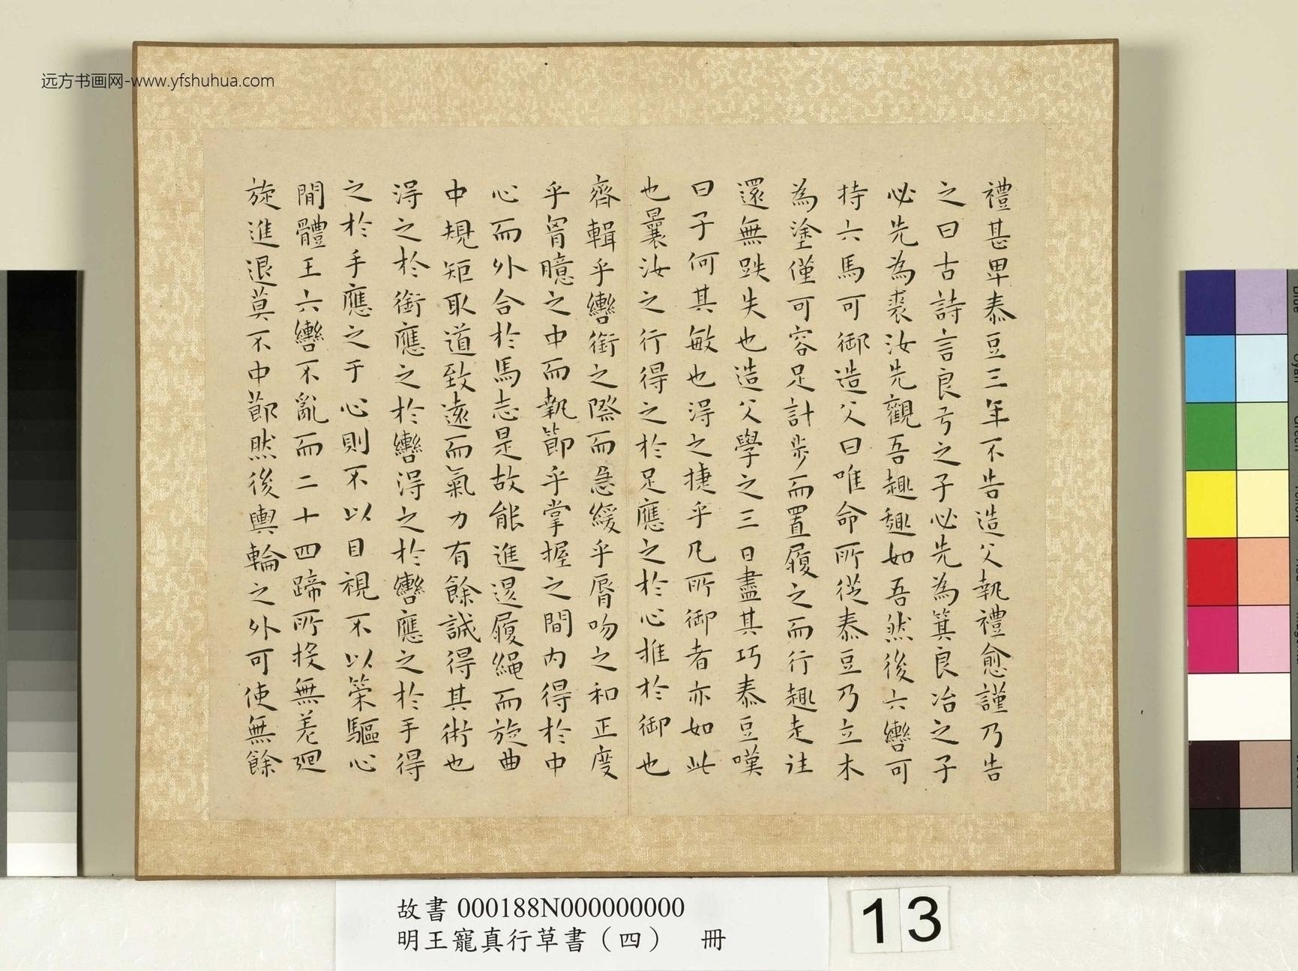 远方书画网-www.yfshuhua.com
禮甚卑泰豆三年不告造父執禮愈謹乃告
之曰古詩言良弓之子必先為箕良冶之子
必先為裘汝先觀吾趣趣如吾然後六轡可
持六馬可御造父曰唯命所從泰豆乃立木
為塗僅可容足計步而置履之而行趣走往
還無跌失也造父學之三日盡其巧泰豆嘆
曰子何其敏也得之捷乎凡所御者亦如此
也曩汝之行得之於足應之於心推於御也
齊輯乎轡銜之際而急緩乎脣吻之和正度
乎胷臆之中而執節乎掌握之間內得於中
心而外合於馬志是故能進退履繩而旋曲
中規矩取道致遠而氣力有餘誠得其術也
得之於銜應之於轡得之於轡應之於手得
之於手應之于心則不以目視不以策驅心
間體正六轡不亂而二十四蹄所投無差廻
旋進退莫不中節然後輿輪之外可使無餘
故書 000188N000000000
明王寵真行草書（四） 冊
13